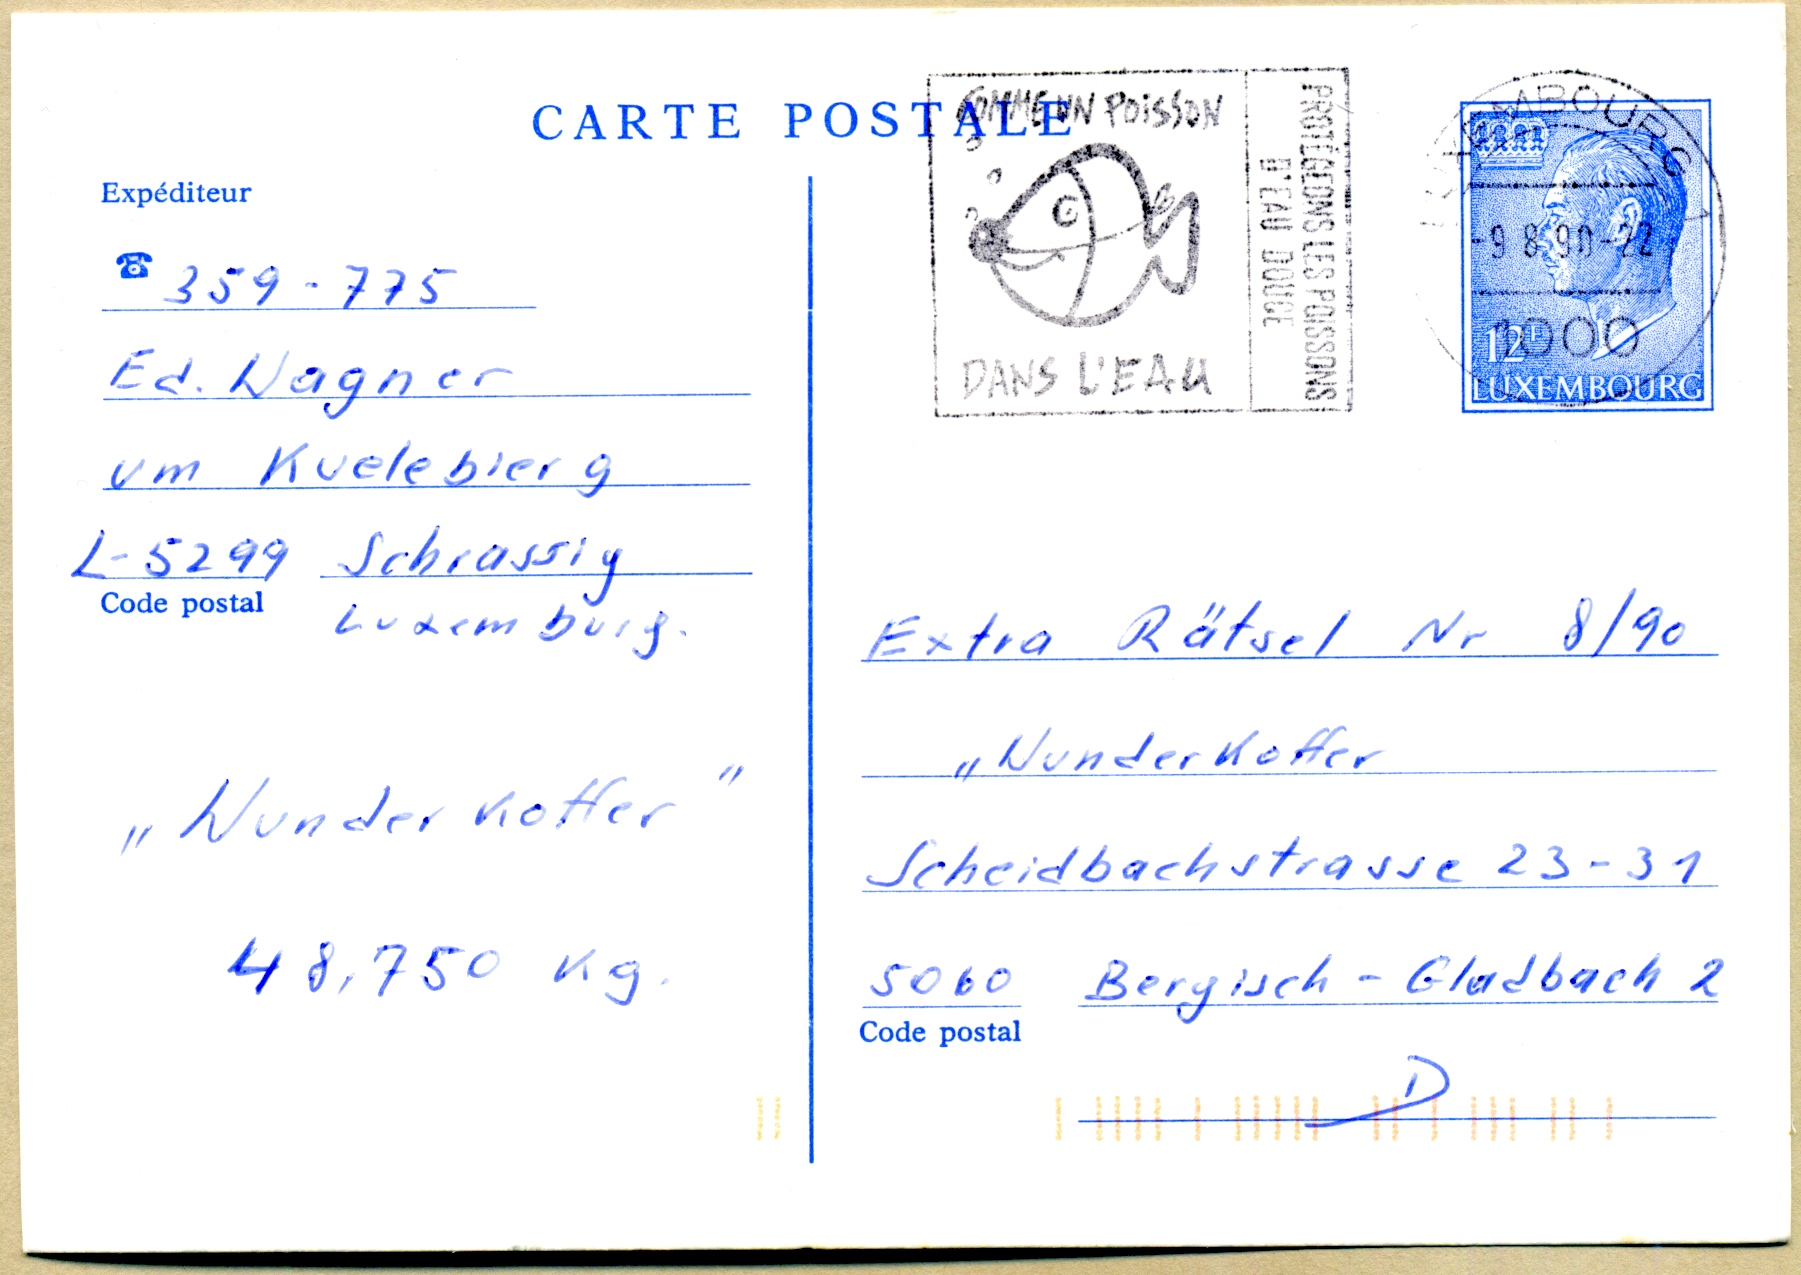 CARTE POSTALE
COMME UN POISSON
DANS L'EAU
PROTÉGEONS LES POISSONS
D'EAU DOUCE
LUXEMBOURG 1
-9 8 90-22
1000
12F
LUXEMBOURG
Expéditeur
☎ 359-775
Ed. Wagner
um Kuelebierg
L-5299 Schrassig
Code postal
Luxemburg.
„Wunderkoffer"
48,750 Kg.
Extra Rätsel Nr 8/90
„Wunderkoffer
Scheidbachstrasse 23-31
5060 Bergisch-Gladbach 2
Code postal
D